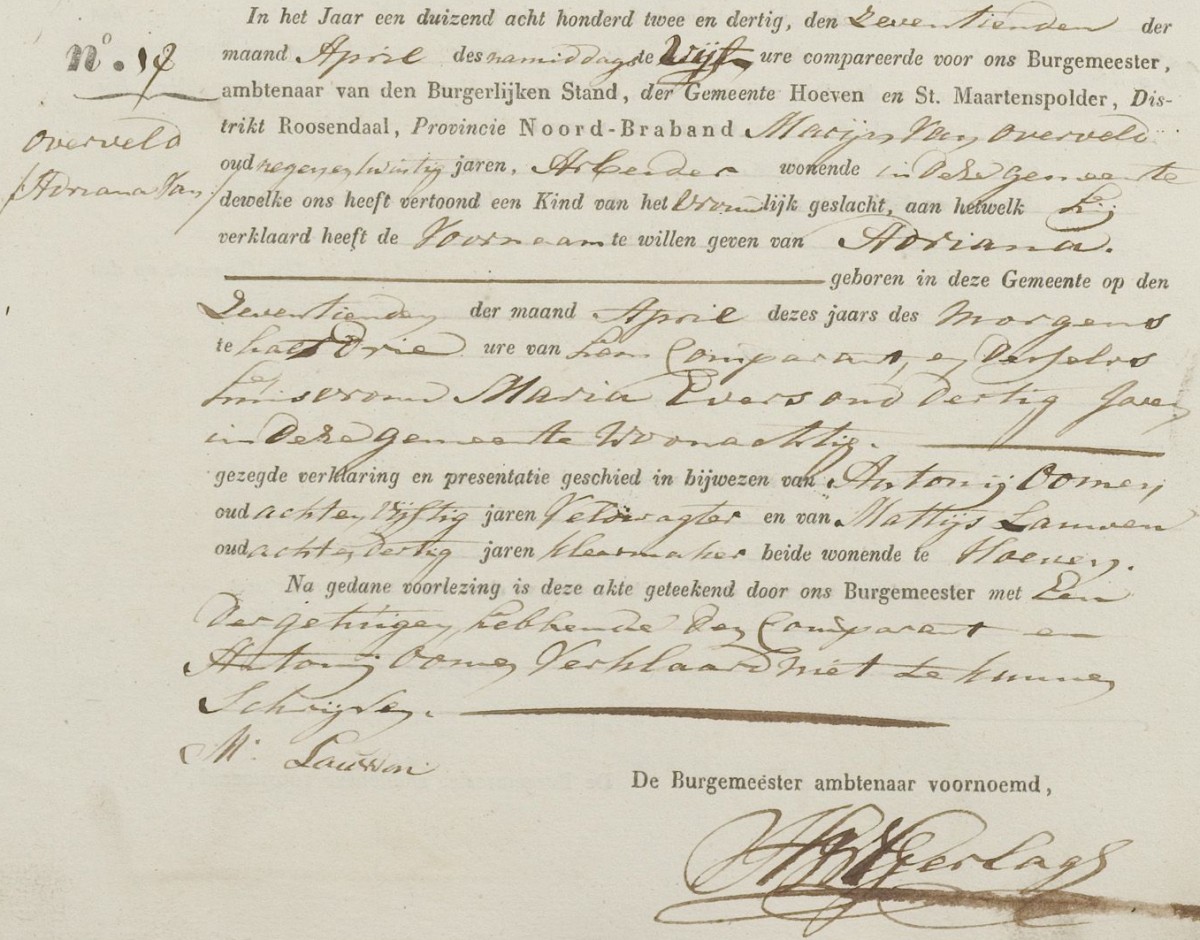 In het Jaar een duizend acht honderd twee en dertig, den Zeventienden der
n°. 17
maand April des namiddags te Vijf ure compareerde voor ons Burgemeester,
ambtenaar van den Burgerlijken Stand, der Gemeente Hoeven en St. Maartenspolder, Dis-
trikt Roosendaal, Provincie Noord-Braband Marijn Van Overveld
Overveld
(Adriana Van)
oud negenentwintig jaren, Arbeider wonende in deze gemeente
dewelke ons heeft vertoond een Kind van het Vrouwlijk geslacht, aan hetwelk hij
verklaard heeft de Voornaam te willen geven van Adriana.
geboren in deze Gemeente op den
Zeventienden der maand April dezes jaars des morgens
te half Drie ure van hem Comparant, en Deszelvs
huisvrouw Maria Evers oud Dertig Jaren
in Deze gemeente Woonachtig.
gezegde verklaring en presentatie geschied in bijwezen van Antonij Oomen
oud achten Vijftig jaren Veldwagter en van Mattijs Lauwen
oud achten dertig jaren kleermaker beide wonende te Hoeven.
Na gedane voorlezing is deze akte geteekend door ons Burgemeester met Een
Der getuigen, hebbende Den Comparant en
Antonij Oomen Verklaard niet te kunnen
Schrijven.
M. Lauwen
De Burgemeester ambtenaar voornoemd,